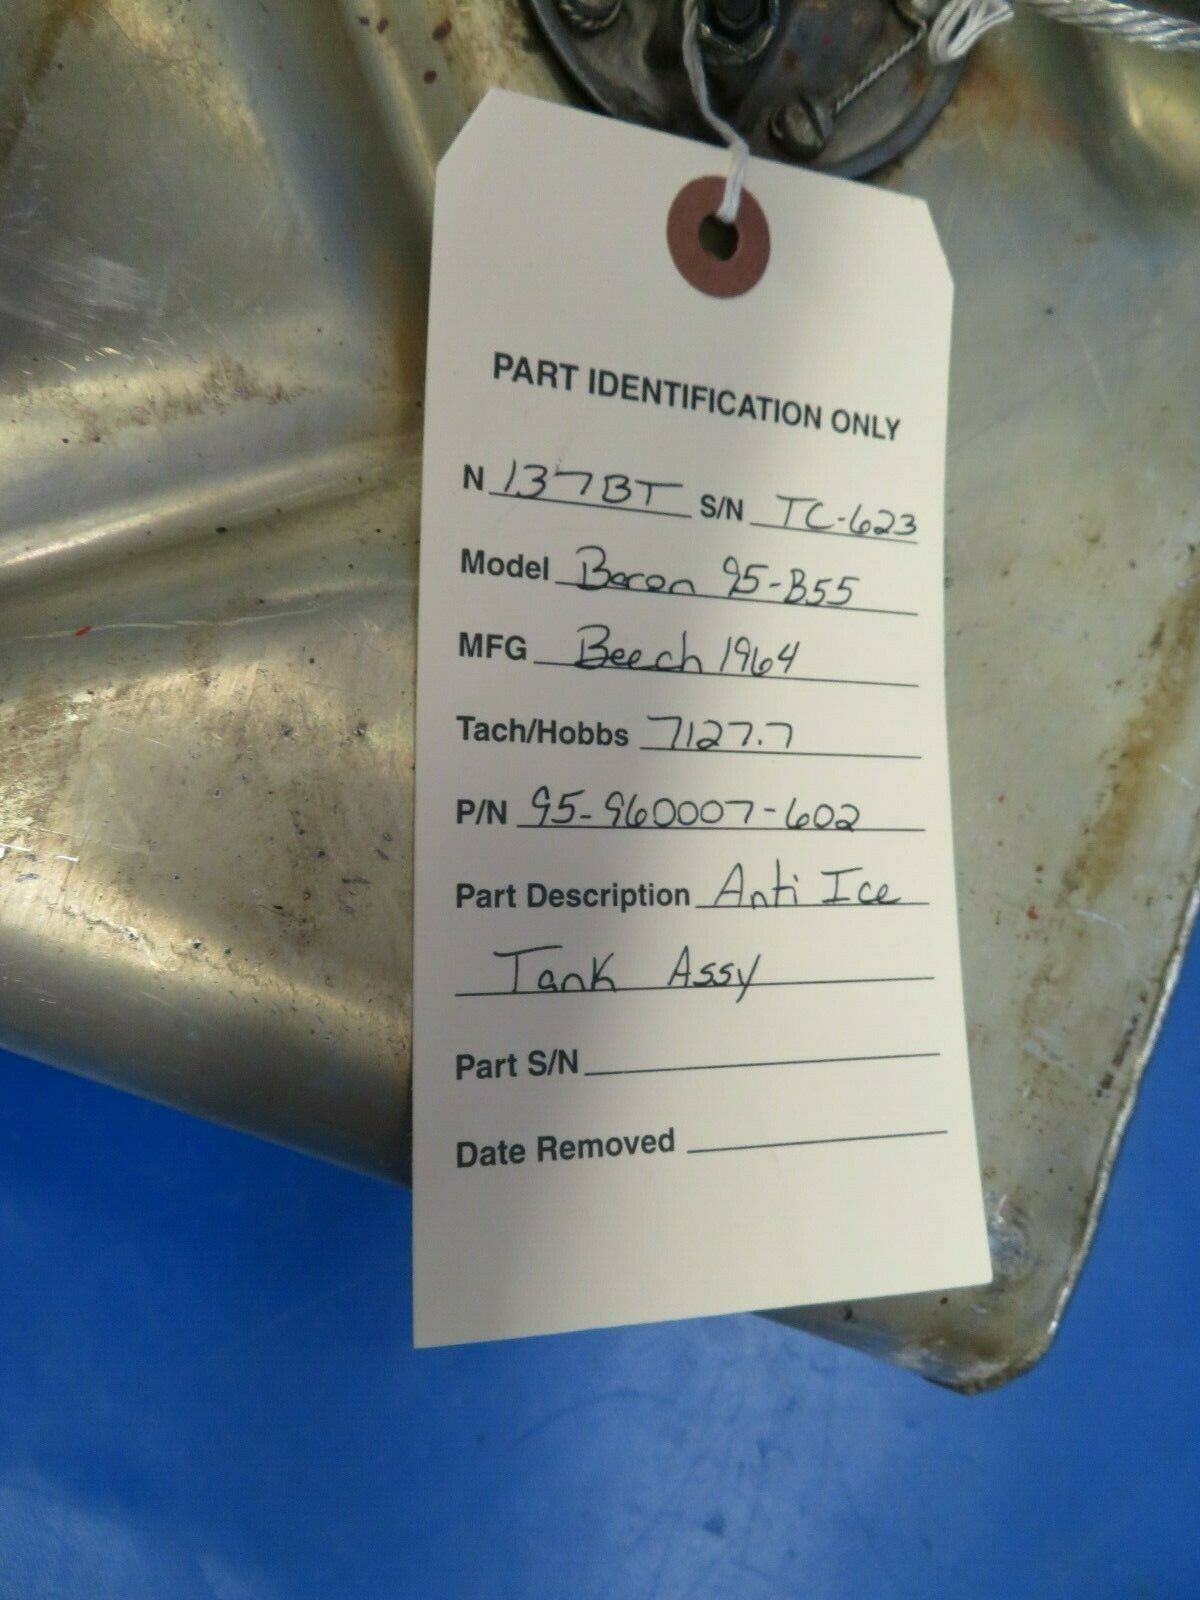 PART IDENTIFICATION ONLY
N 137BT S/N TC-623
Model Baron 95-B55
MFG Beech 1964
Tach/Hobbs 7127.7
P/N 95-960007-602
Part Description Anti Ice
Tank Assy
Part S/N
Date Removed